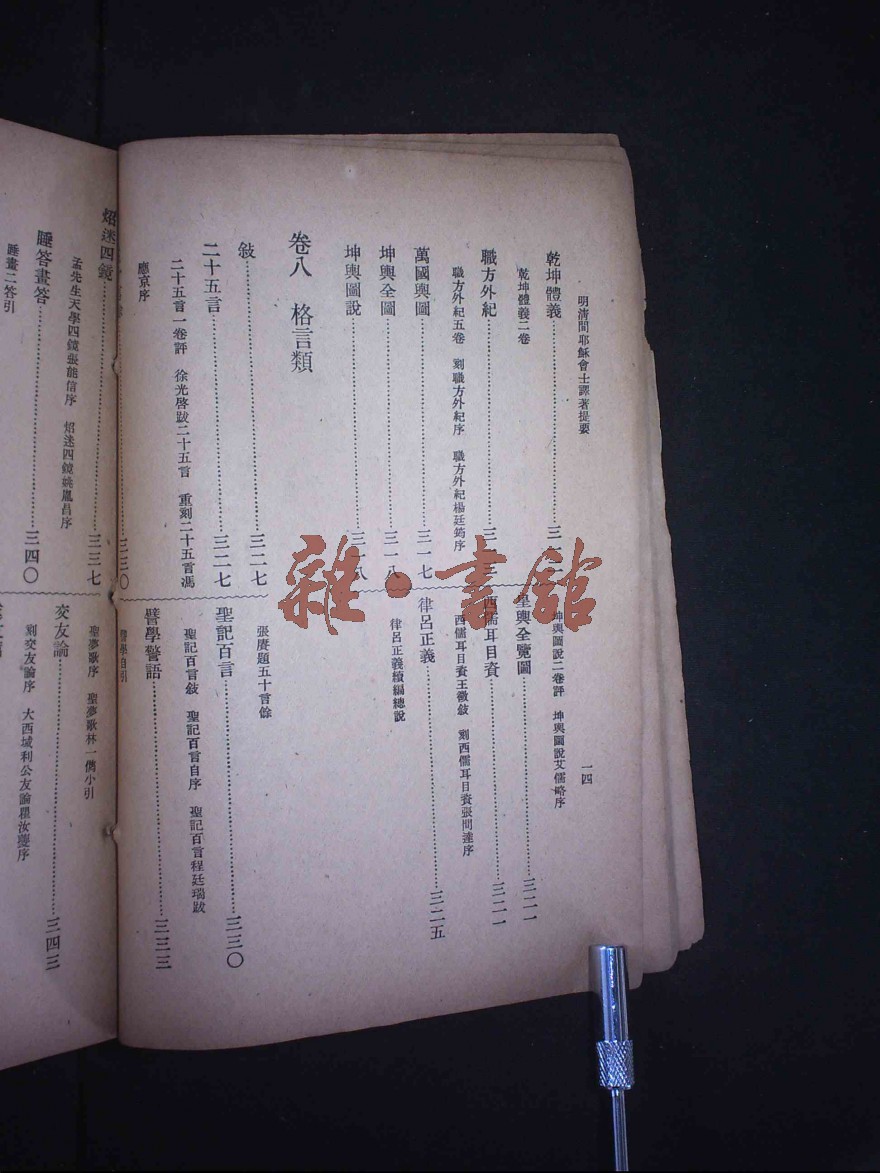 明清間耶穌會士譯著提要
一四
乾坤體義
乾坤體義二卷
職方外紀
職方外紀五卷 刻職方外紀序 職方外紀楊廷筠序
萬國輿圖 三一七
坤輿全圖 三一八
坤輿圖說 三一八
卷八 格言類
敍 三二七
二十五言 三二七
二十五言一卷評 徐光啓跋二十五言 重刻二十五言馮
應京序
三三〇
坤輿圖說二卷評 坤輿圖說艾儒略序
皇輿全覽圖 三二一
西儒耳目資 三二一
西儒耳目資王徵敍 刻西儒耳目資張問達序
律呂正義 三二五
律呂正義續編總說
張賡題五十言餘
聖記百言 三三〇
聖記百言敍 聖記百言自序 聖記百言程廷瑞跋
譬學警語 三三三
譬學自引
炤迷四鏡 三三七
孟先生天學四鏡張能信序 炤迷四鏡姚胤昌序
睡答畫答 三四〇
睡畫二答引
聖夢歌序 聖夢歌林一儁小引
交友論 三四三
刻交友論序 大西域利公友論瞿汝夔序
雜·書館